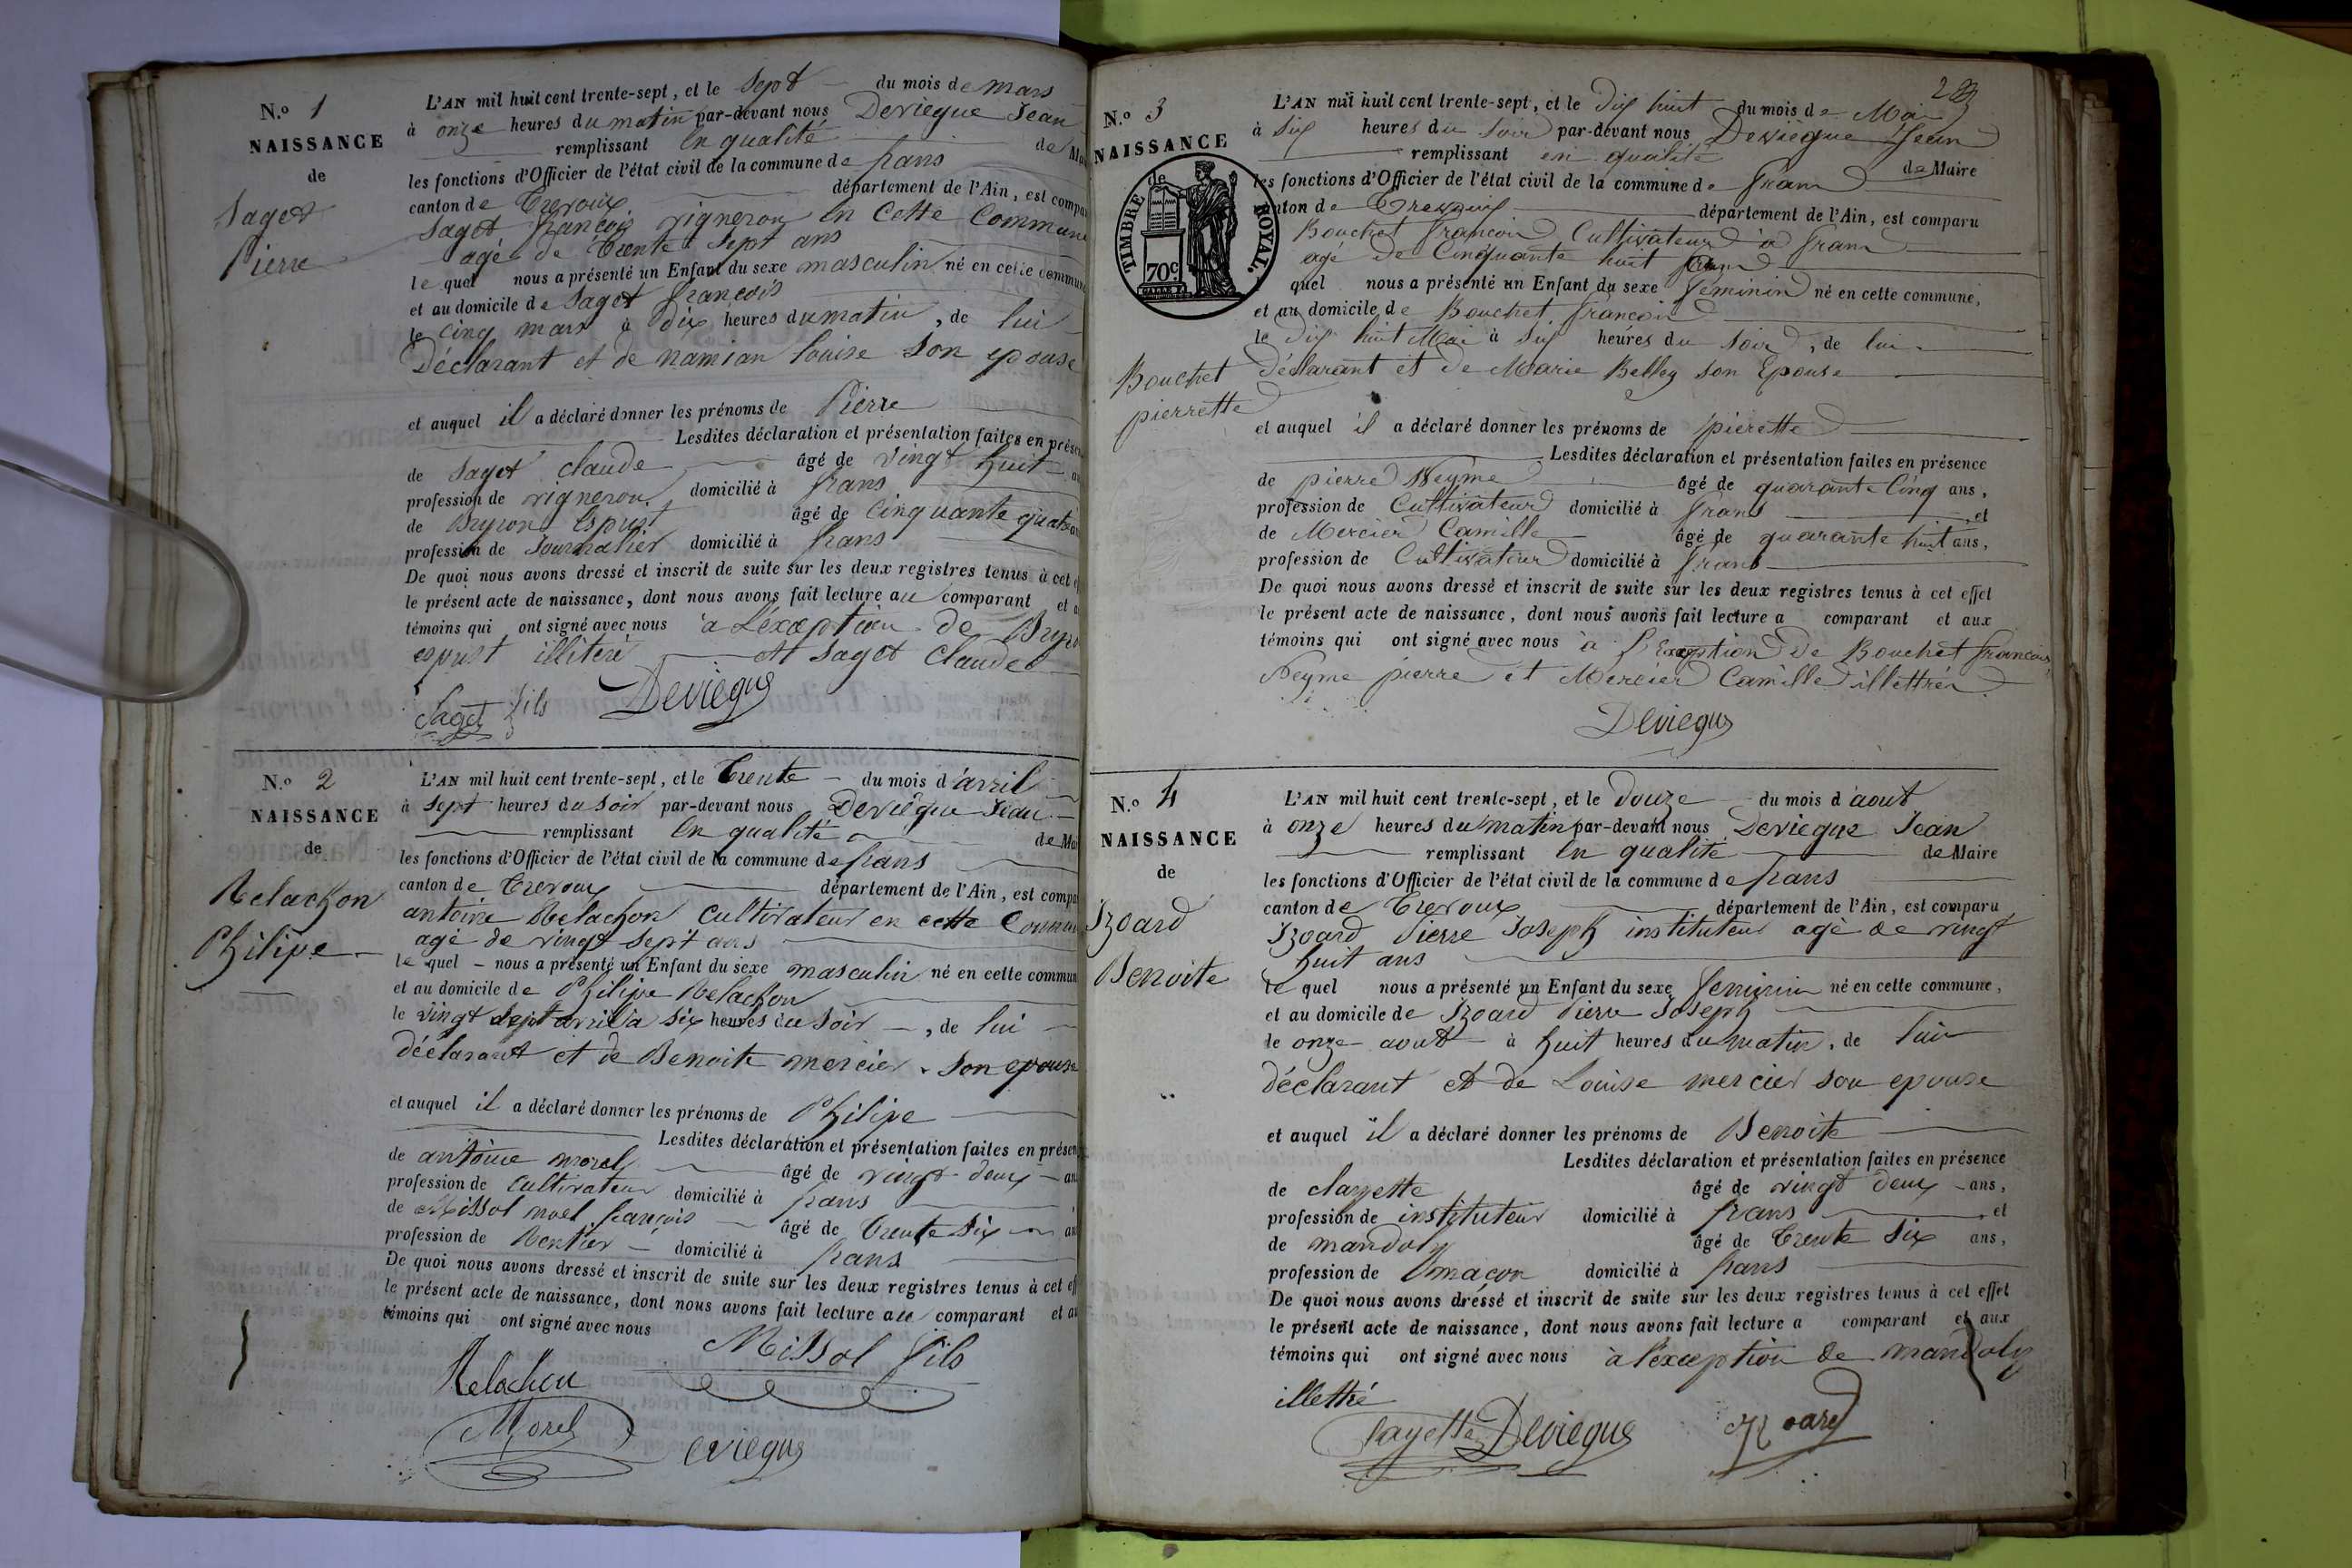 N.º 1
NAISSANCE
de
Saget
Pierre
L'AN mil huit cent trente-sept, et le sept du mois de mars
à onze heures du matin par-devant nous Deviegue Jean
remplissant en qualité de Mai
les fonctions d'Officier de l'état civil de la commune de frans
canton de Trevoux département de l'Ain, est compa
Saget françois vigneron en cette commune
agé de trente sept ans
le quel nous a présenté un Enfant du sexe masculin né en cette commune
et au domicile de Saget françois
le cinq mars à dix heures du matin, de lui
Déclarant et de namian louise son epouse
et auquel il a déclaré donner les prénoms de Pierre
Lesdites déclaration et présentation faites en présen
de Saget claude âgé de vingt huit an
profession de vigneron domicilié à frans
de espust âgé de cinquante quatre
profession de Journalier domicilié à frans
De quoi nous avons dressé et inscrit de suite sur les deux registres tenus à cet ef
le présent acte de naissance, dont nous avons fait lecture au comparant et a
témoins qui ont signé avec nous a L'éxception de
espust illiteré et Saget claude
Saget fils Deviegue
N.º 2
NAISSANCE
de
Relachon
Philipe
L'AN mil huit cent trente-sept, et le trente du mois d'avril
à sept heures du soir par-devant nous Deviegue Jean
remplissant en qualité de Mai
les fonctions d'Officier de l'état civil de la commune de frans
canton de Trevoux département de l'Ain, est compa
antoine Relachon cultivateur en cette Commun
agé de vingt sept ans
le quel nous a présenté un Enfant du sexe masculin né en cette commun
et au domicile de Philipe Relachon
le vingt sept avril à six heures du soir, de lui
déclarant et de Benoite mercier son epouse
et auquel il a déclaré donner les prénoms de Philipe
Lesdites déclaration et présentation faites en présen
de antoine morel âgé de vingt deux an
profession de cultivateur domicilié à frans
de Missol noel françois âgé de trente six an
profession de Rentier domicilié à frans
De quoi nous avons dressé et inscrit de suite sur les deux registres tenus à cet ef
le présent acte de naissance, dont nous avons fait lecture au comparant et au
témoins qui ont signé avec nous
Missol fils
Relachon
Morel
eviegue
283
N.º 3
NAISSANCE
de
TIMBRE ROYAL.
70c
Bouchet
pierrette
L'AN mil huit cent trente-sept, et le dix huit du mois de Mai
à six heures du soir par-devant nous Deviegue Jean
remplissant en qualité de Maire
les fonctions d'Officier de l'état civil de la commune de frans
canton de Trevoux département de l'Ain, est comparu
Bouchet francois Cultivateur à frans
agé de Cinquante huit
quel nous a présenté un Enfant du sexe féminin né en cette commune,
et au domicile de Bouchet francois
le dix huit Mai à six heures du soir, de lui
déclarant et de Marie Belley son Epouse
et auquel il a déclaré donner les prénoms de pierette
Lesdites déclaration et présentation faites en présence
de pierre Neyme âgé de quarante Cinq ans,
profession de Cultivateur domicilié à frans, et
de Mercier Camille âgé de quarante huit ans,
profession de Cultivateur domicilié à frans
De quoi nous avons dressé et inscrit de suite sur les deux registres tenus à cet effet
le présent acte de naissance, dont nous avons fait lecture a comparant et aux
témoins qui ont signé avec nous à l'Exception de Bouchet francois
Neyme pierre et Mercier Camille illettrés.
Deviegue
N.º 4
NAISSANCE
de
Izoard
Benoite
L'AN mil huit cent trente-sept, et le douze du mois d'aout
à onze heures du matin par-devant nous Deviegue Jean
remplissant en qualité de Maire
les fonctions d'Officier de l'état civil de la commune de frans
canton de Trevoux département de l'Ain, est comparu
Izoard Pierre Joseph instituteur agé de vingt
huit ans
le quel nous a présenté un Enfant du sexe feminin né en cette commune,
et au domicile de Izoard Pierre Joseph
le onze aout à huit heures du matin, de lui
déclarant et de Louise mercier son epouse
et auquel il a déclaré donner les prénoms de Benoite
Lesdites déclaration et présentation faites en présence
de clayette âgé de vingt deux ans,
profession de instituteur domicilié à frans, et
de mandoly âgé de trente six ans,
profession de maçon domicilié à frans
De quoi nous avons dressé et inscrit de suite sur les deux registres tenus à cet effet
le présent acte de naissance, dont nous avons fait lecture a comparant et aux
témoins qui ont signé avec nous à l'exception de mandoly
illettré
Layette Deviegue Izoard